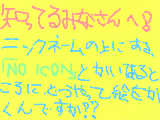 知ってるみなさんへ!
ニックネームの上にする
「NO ICON」とかいてあると
ころにどうやって絵をか
くんですか??